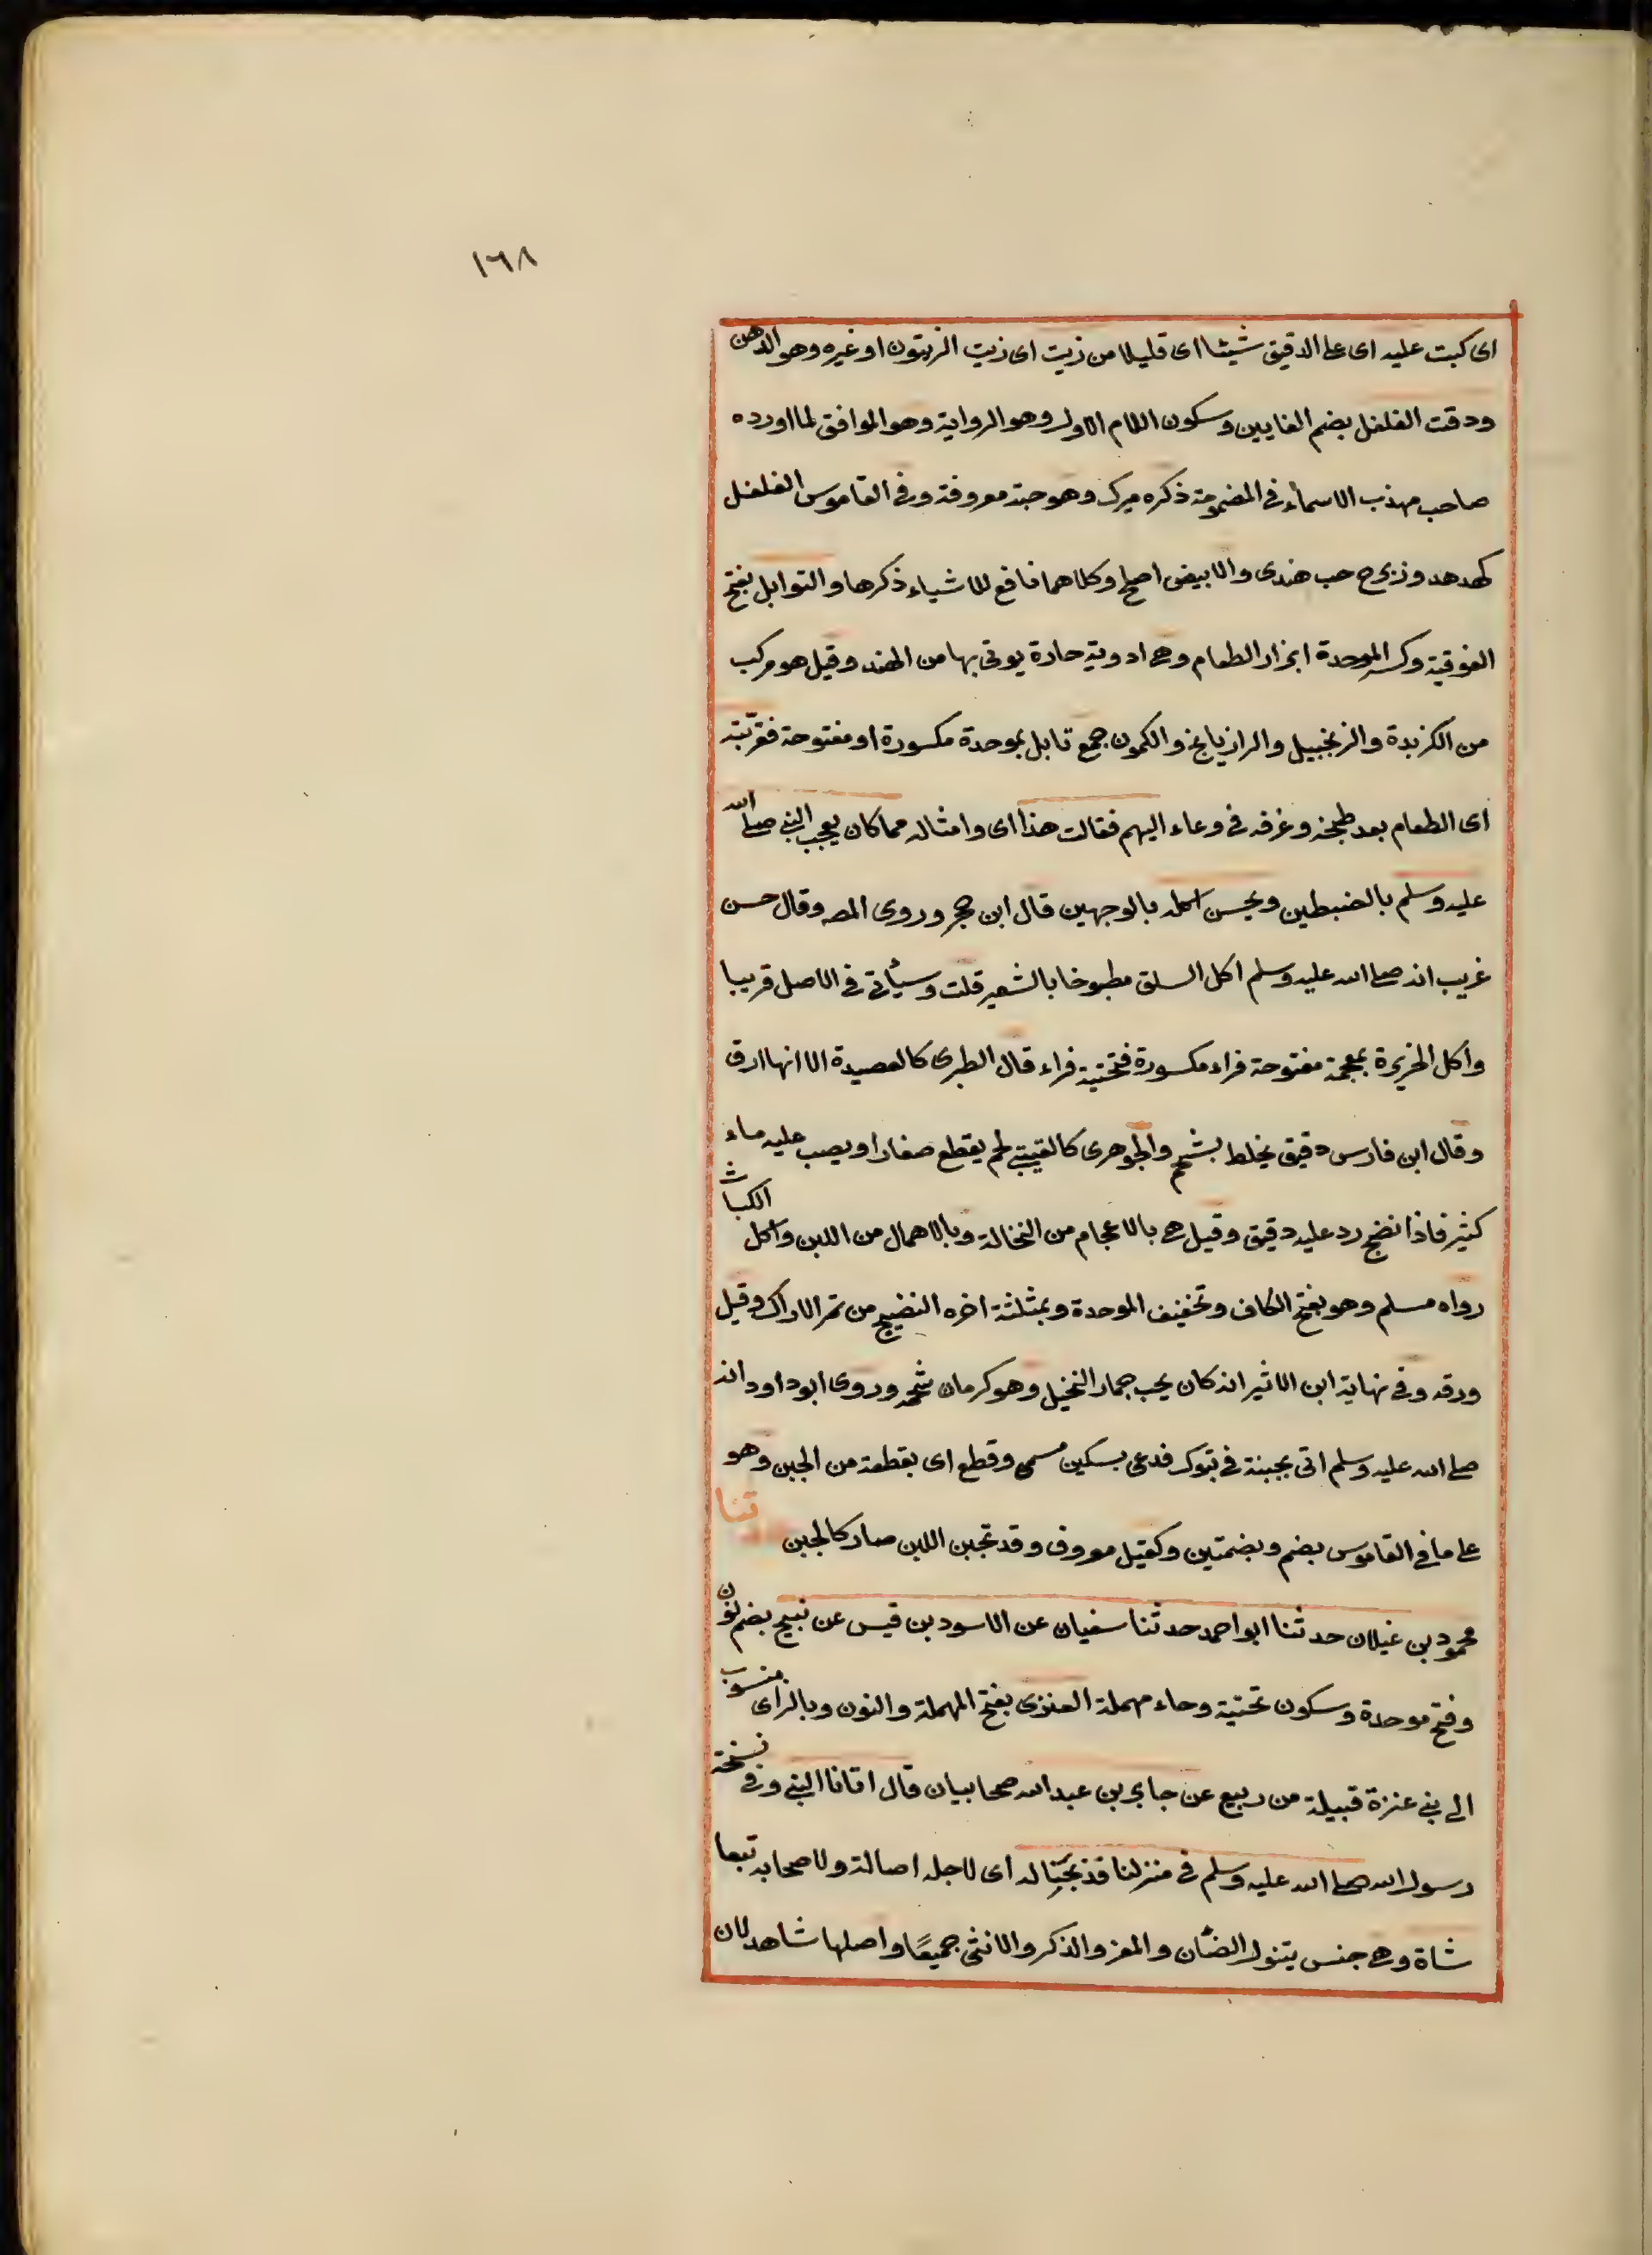 ١٦٨
اى كبت عليه اى على الدقيق شيئا اى قليلا من زيت اى زيت الزيتون او غيره وهو الدهن
ودقت الفلفل بضم الفايين وسكون اللام الاولى وهو الرواية وهو الموافق لما اورده
صاحب مهذب الاسماء فى المضمومة ذكره ميرك وهو حبة معروفة وفى القاموس الفلفل
كهدهد وزبرج حب هندى والابيض اصلح وكلاهما نافع للاشياء ذكرها والتوابل بفتح
الفوقية وكسر الموحدة ابزار الطعام وهى ادوية حارة يوتى بها من الهند وقيل هو مركب
من الكزبدة والزنجبيل والرازيانج والكمون جمع تابل بموحدة مكسورة او مفتوحة فقرّبته
اى الطعام بعد طبخه وغرفه فى وعاء اليهم فقالت هذا اى وامثاله مما كان يعجب النبى صلى الله
عليه وسلم بالضبطين ويحسن اكله بالوجهين قال ابن حجر وروى المصـ وقال حسن
غريب انه صلى الله عليه وسلم اكل السلق مطبوخا بالشعير قلت وسيأتى فى الاصل قريبا
واكل الخزيرة بمعجمة مفتوحة فزاء مكسورة فتحتية فراء قال الطبرى كالعصيدة الا انها ارق
وقال ابن فارس دقيق يخلط بشحم والجوهرى كالقيتبى لحم يقطع صغارا ويصب عليه ماء
كثير فاذا نضج رد عليه دقيق وقيل هى بالاعجام من النخالة وبالاهمال من اللبن واكل الكباث
رواه مسلم وهو بفتح الكاف وتخفيف الموحدة وبمثلثة اخره النضيج من ثمر الاراك وقيل
ورقه وفى نهاية ابن الاثير انه كان يحب جمار النخيل وهو كرمان شحمه وروى ابو داود انه
صلى الله عليه وسلم اتى بجبنة فى تبوك فدعى بسكين فسمى وقطع اى بقطعة من الجبن وهو
على ما فى القاموس بضم وبضمتين وكعتل معروف وقد تجبن اللبن صار كالجبن ثنا
محمود بن غيلان حدثنا ابو احمد حدثنا سفيان عن الاسود بن قيس عن نبيح بضم نون
وفتح موحدة وسكون تحتية وحاء مهملة العنزى بفتح المهملة والنون وبالزاى منسوب
الى بنى عنزة قبيلة من ربيع عن جابر بن عبد الله صحابيان قال اتانا النبى وفى نسخة
رسول الله صلى الله عليه وسلم فى منزلنا فذبحنا له اى لاجله اصالة ولاصحابه تبعا
شاة وهى جنس يتنول الضأن والمعز والذكر والانثى جميعًا واصلها شاهه لان